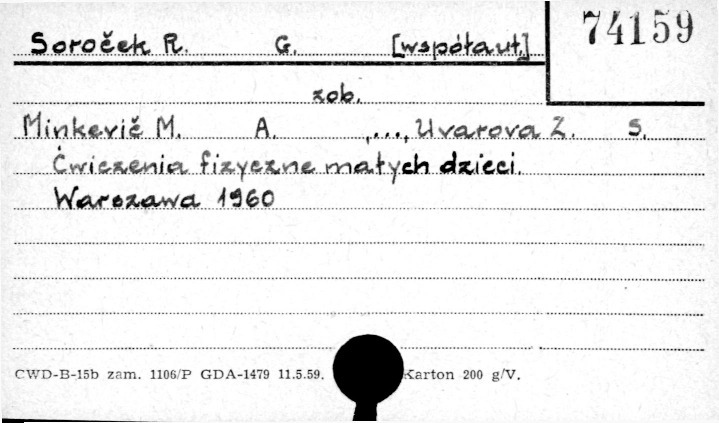 74159
Soroček R. G. [współaut.]
zob.
Minkevič M. A. ,..., Uvarova Z. S.
Ćwiczenia fizyczne małych dzieci.
Warszawa 1960
CWD-B-15b zam. 1106/P GDA-1479 11.5.59. Karton 200 g/V.